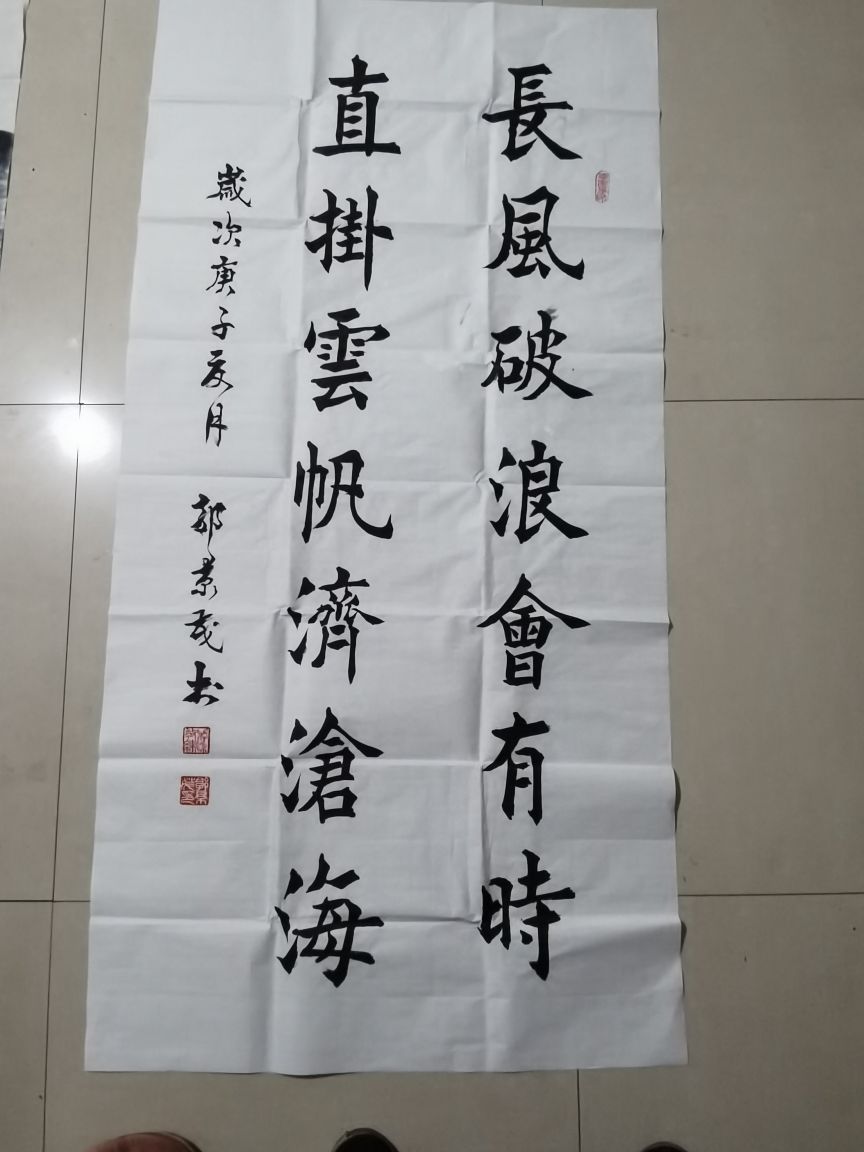 長風破浪會有時
直掛雲帆濟滄海
歲次庚子夏月 郭景茂书